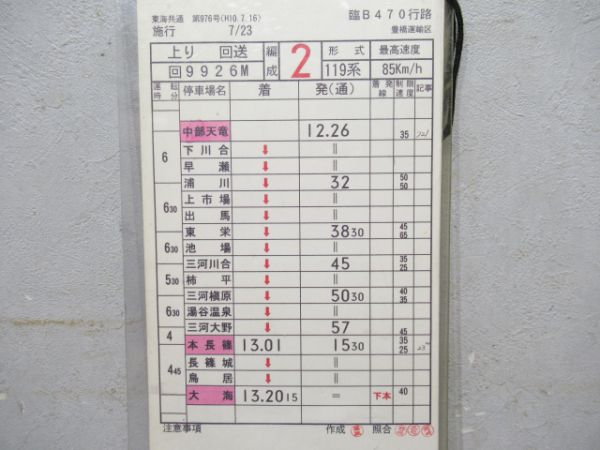 東海共通 第976号(H10.7.16) 臨B470行路
施行 7/23 豊橋運輸区
上り 回送 編成 2 形式 最高速度
回9926M 119系 85Km/h
運転時分 停車場名 着 発(通) 着発線 制限速度 記事
中部天竜 12.26 35
6 下川合 ↓ ॥
早瀬 ↓ ॥
浦川 ↓ 32 50 50
6 30 上市場 ↓ ॥
出馬 ↓ ॥
東栄 ↓ 38 30 45 65
6 30 池場 ↓ ॥
三河川合 ↓ 45 35 25
5 30 柿平 ↓ ॥
三河槇原 ↓ 50 30 40 35
6 30 湯谷温泉 ↓ ॥
三河大野 ↓ 57 45
4 本長篠 13.01 15 30 35 25
4 45 長篠城 ↓ ॥
鳥居 ↓ ॥
大海 13.20 15 = 下本 40
注意事項 作成 照合